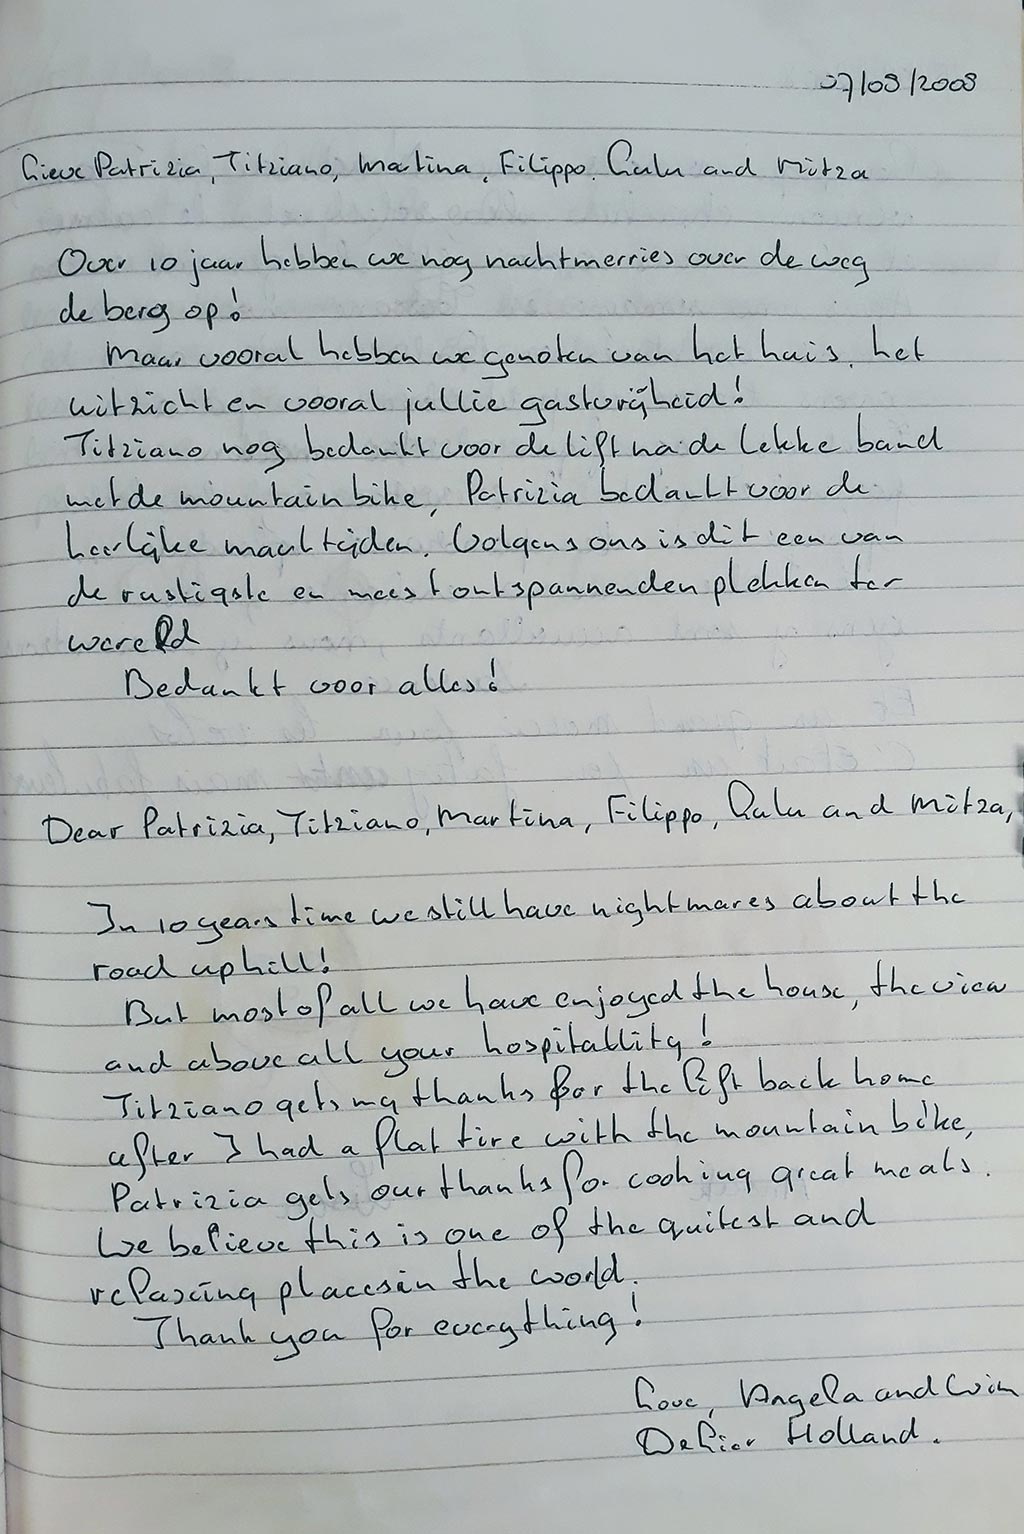 07/09/2009
Lieve Patrizia, Titziano, Martina, Filippo, Lulu and Mitza
Over 10 jaar hebben we nog nachtmerries over de weg
de berg op!
Maar vooral hebben we genoten van het huis, het
uitzicht en vooral jullie gastvrijheid!
Titziano nog bedankt voor de lift na de lekke band
met de mountainbike, Patrizia bedankt voor de
heerlijke maaltijden. Volgens ons is dit een van
de rustigste en meest ontspannenden plekken ter
wereld
Bedankt voor alles!
Dear Patrizia, Titziano, Martina, Filippo, Lulu and Mitza,
In 10 years time we still have nightmares about the
road uphill!
But most of all we have enjoyed the house, the view
and above all your hospitallity!
Titziano gets my thanks for the lift back home
after I had a flat tire with the mountain bike,
Patrizia gets our thanks for cooking great meals.
We believe this is one of the quitest and
relaxing places in the world.
Thank you for everything!
Love, Angela and Wim
Holland.